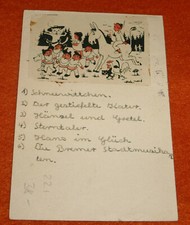 1) Schneewittchen.
2) Der gestiefelte Kater.
3) Hänsel und Gretel.
4) Sterntaler.
5) Hans im Glück
6) Die Bremer Stadtmusikan
ten.